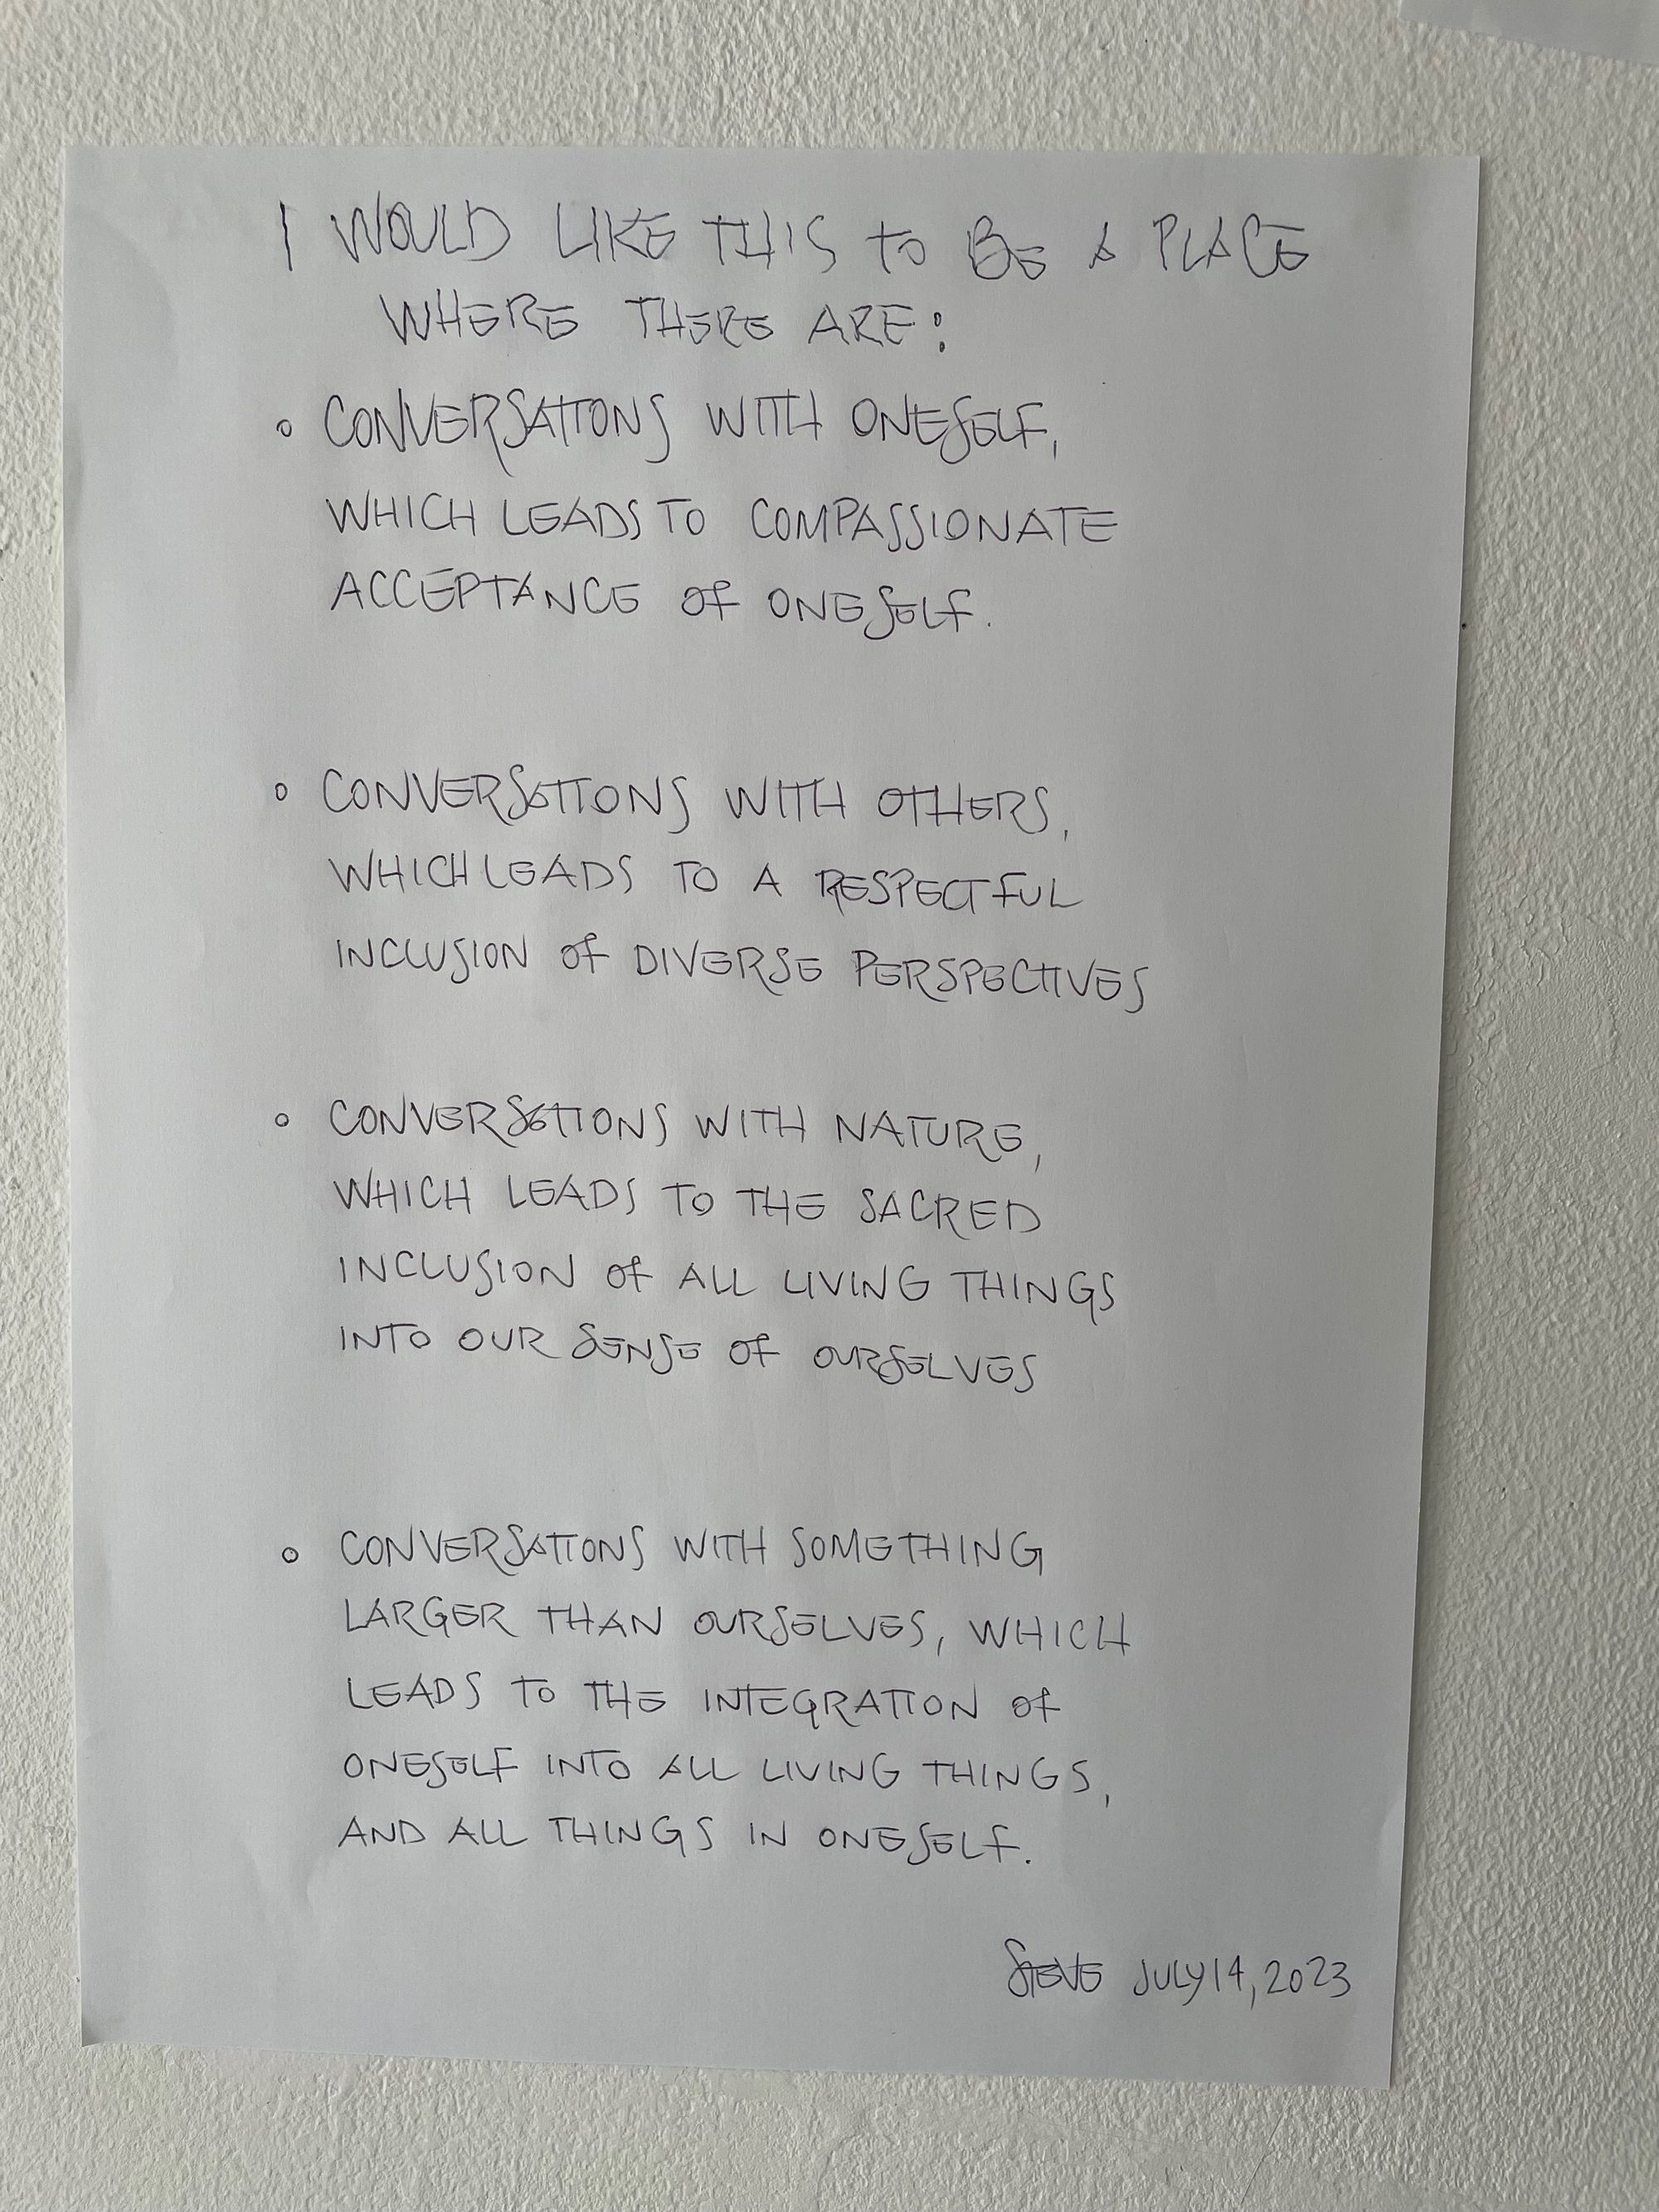 I WOULD LIKE THIS TO BE A PLACE
WHERE THERE ARE:
◦ CONVERSATIONS WITH ONESELF,
WHICH LEADS TO COMPASSIONATE
ACCEPTANCE OF ONESELF.
◦ CONVERSATIONS WITH OTHERS,
WHICH LEADS TO A RESPECTFUL
INCLUSION OF DIVERSE PERSPECTIVES
◦ CONVERSATIONS WITH NATURE,
WHICH LEADS TO THE SACRED
INCLUSION OF ALL LIVING THINGS
INTO OUR SENSE OF OURSELVES
◦ CONVERSATIONS WITH SOMETHING
LARGER THAN OURSELVES, WHICH
LEADS TO THE INTEGRATION OF
ONESELF INTO ALL LIVING THINGS,
AND ALL THINGS IN ONESELF.
STEVE JULY 14, 2023